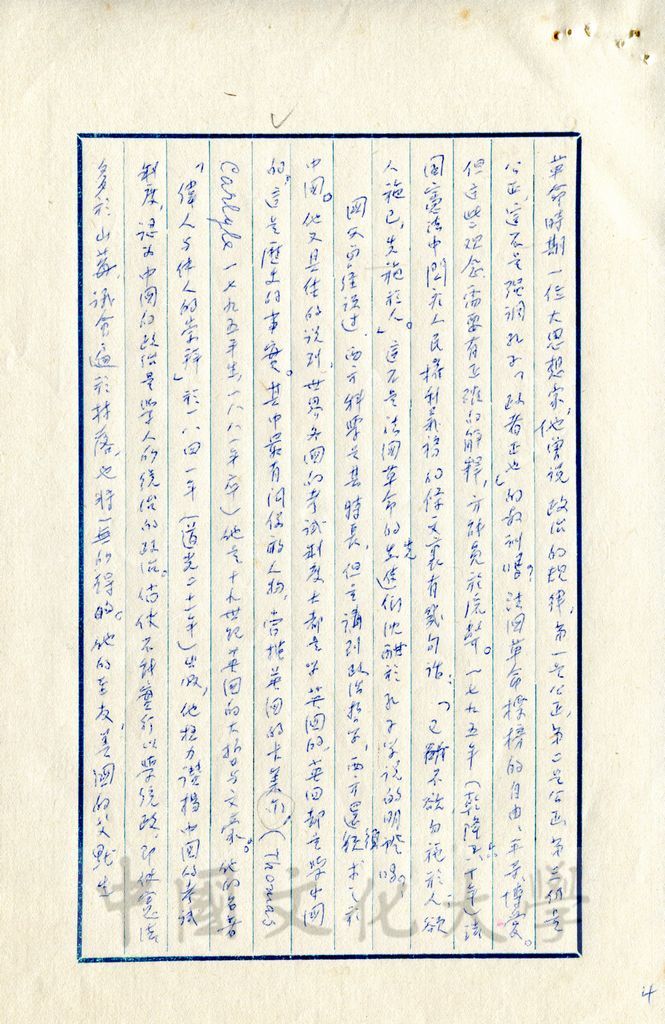 革命時期一位大思想家,他曾說政治的規律,第一是公正,第二是公正,第三仍是
公正,這不是強調孔子「政者正也」的教訓嗎?法國革命標榜的自由、平等、博愛。
但這些觀念需要有正確的解釋,方能免於流弊。一七九五年(乾隆六十年)法
國憲法中關於人民權利義務的條文裏有幾句話:「己所不欲勿施於人,欲
人施己,先施於人。」這不是法國革命的先進們沈醉於孔子學說的明證嗎?
國父曾經說過,西方科學是其特長,但是講到政治哲學,西方還須求之於
中國。他又具體的說到,世界各國的考試制度大都是學英國的,英國卻是學中國
的。這是歷史的事實。其中最有關係的人物,當推英國的卡萊爾。(Thomas
Carlyle 一七九五年生,一八八一年卒)他是十九世紀英國的大哲與文豪。他的名著
「偉人與偉人的崇拜」於一八四一年(道光二十一年)出版,他極力讚揚中國的考試
制度,認為中國的政治是學人的統治的政治。 不能實行以學統政,即使憲法
多於山莓,議會遍於村落,也將一無所得的。他的至友,美國的文默生
4
中國文化大學